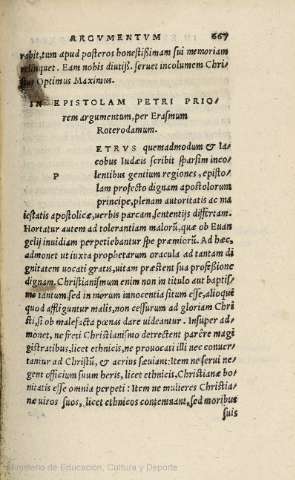 ARGVMENTVM 667
rabit, tum apud posteros honestißimam sui memoriam
relinquet. Eam nobis diutiß. seruet incolumem Chri-
stus Optimus Maximus.
IN EPISTOLAM PETRI PRIO,
rem argumentum, per Erasmum
Roterodamum.
PETRVS quemadmodum & Ia,
cobus Iudæis scribit sparsim inco,
lentibus gentium regiones, episto,
lam profecto dignam apostolorum
principe, plenam autoritatis ac ma
iestatis apostolicæ, uerbis parcam, sententijs differtam.
Hortatur autem ad tolerantiam malorū, quæ ob Euan
gelij inuidiam perpetiebantur spe præmiorū. Ad hæc,
admonet ut iuxta prophetarum oracula ad tantam di
gnitatem uocati gratis, uitam præstent sua profeßione
dignam. Christianismum enim non in titulo aut baptis,
mo tantum, sed in morum innocentia situm esse, alioqui
quod affliguntur malis, non cessurum ad gloriam Chri
sti, si ob malefacta pœnas dare uideantur. Insuper ad,
monet, ne freti Christianismo detrectent parêre magi
stratibus, licet ethnicis, ne prouocati illi nec conuer,
tantur ad Christū, & acrius sæuiant: Item ne serui ne,
gent officium suum heris, licet ethnicis, Christianæ bo,
nitatis esse omnia perpeti: Item ne mulieres Christia,
næ uiros suos, licet ethnicos contemnant, sed moribus
suis
Ministerio de Educación, Cultura y Deporte